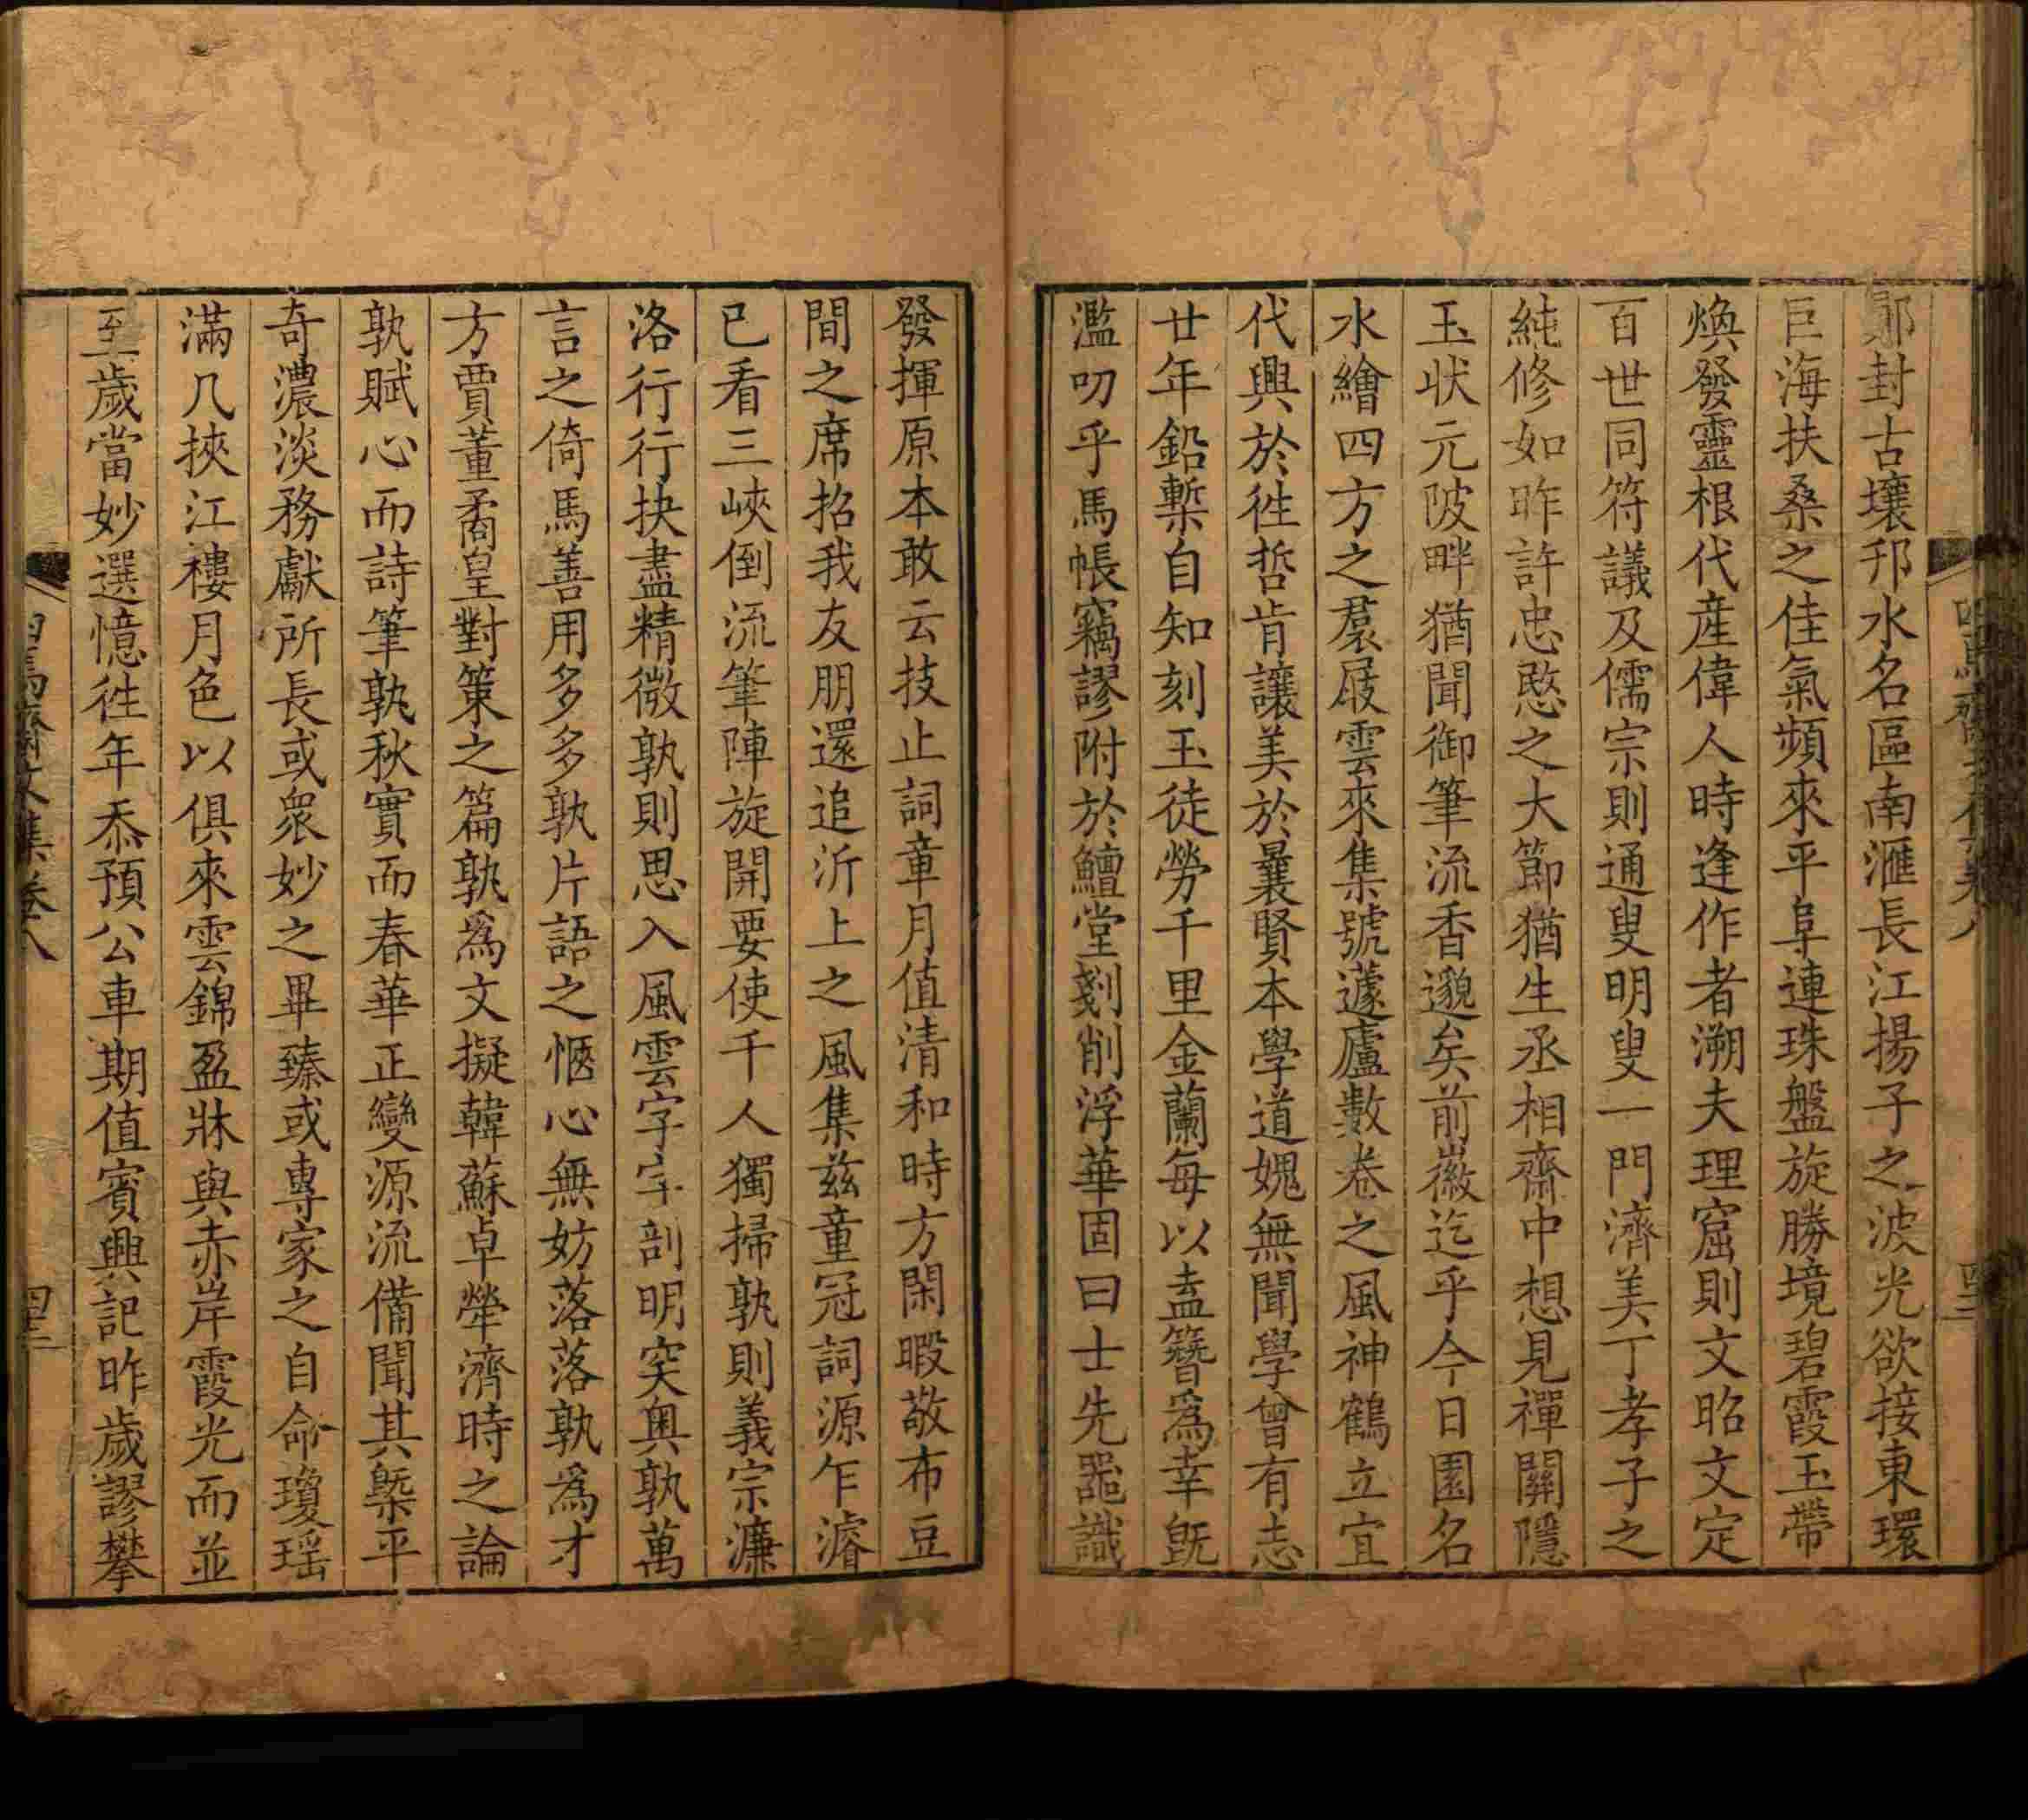 鄖封古壤邗水名區南滙長江揚子之波光欲接東環
巨海扶桑之佳氣頻來平阜連珠盤旋勝境碧霞玉帶
煥發靈根代産偉人時逢作者溯夫理窟則文昭文定
百世同符議及儒宗則通叟明叟一門濟美丁孝子之
純修如昨許忠愍之大節猶生丞相齋中想見禪關隱
玉状元陂畔猶聞御筆流香邈矣前徽迄乎今日園名
水繪四方之羣屐雲來集號蘧廬數卷之風神鶴立宜
代興於徃哲肯讓美於曩賢本學道媿無聞學曾有志
廿年鉛槧自知刻玉徒勞千里金蘭每以盍簪爲幸旣
濫叨乎馬帳竊謬附於鱣堂剗削浮華固曰士先噐識
發揮原本敢云技止詞章月值清和時方閑暇敬布豆
間之席招我友朋還追沂上之風集兹童冠詞源乍濬
已看三峽倒流筆陣旋開要使千人獨掃孰則義宗濂
洛行行抉盡精微孰則思入風雲字字剖明突奥孰萬
言之倚馬善用多多孰片語之愜心無妨落落孰爲才
方賈董矞皇對策之篇孰爲文擬韓蘇卓犖濟時之論
孰賦心而詩筆孰秋實而春華正變源流備聞其槩平
奇濃淡務獻所長或衆妙之畢臻或專家之自命瓊瑶
滿几挾江樓月色以俱來雲錦盈牀與赤岸霞光而並
至歲當妙選憶徃年忝預公車期值賓興記昨歲謬攀
四馬齋文集卷八